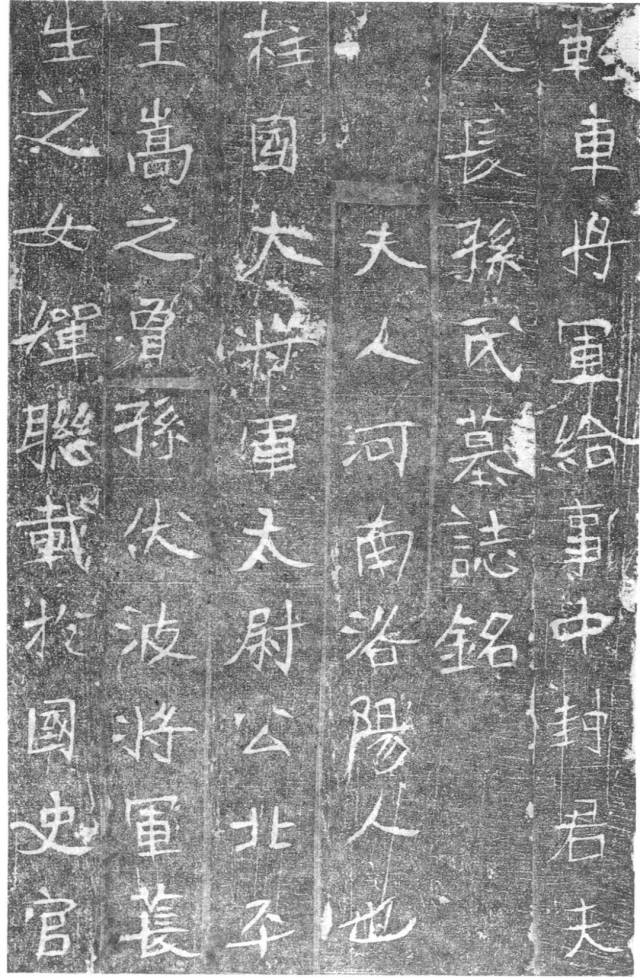 輕車將軍給事中封君夫
人長孫氏墓誌銘
夫人河南洛陽人也
柱國大將軍太尉公北平
王嵩之曾孫伏波將軍萇
生之女嬋聯載於國史官